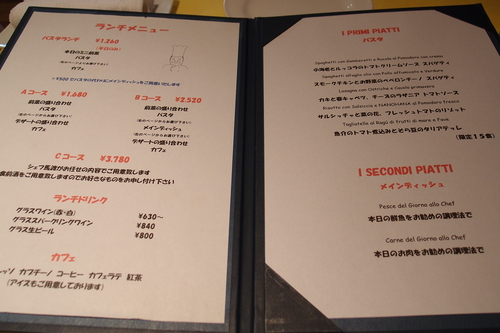 ランチメニュー
パスタランチ ¥1,260
本日のミニ前菜
パスタ
カフェ
Aコース ¥1,680
前菜の盛り合わせ
パスタ
デザートの盛り合わせ
カフェ
Bコース ¥2,520
前菜の盛り合わせ
パスタ
メインディッシュ
デザートの盛り合わせ
カフェ
Cコース ¥3,780
シェフ馬渡がお任せの内容でご用意致します
食前酒をご用意致しますのでお好きなものをお申し付け下さい
ランチドリンク
グラスワイン(赤・白) ¥630～
グラススパークリングワイン ¥840
グラス生ビール ¥800
カフェ
カプチーノ コーヒー カフェラテ 紅茶
(アイスもご用意しております)
I PRIMI PIATTI
パスタ
Spaghetti con Gamberetti e Rucola al Pomodoro con crema
小海老とルッコラのトマトクリームソース スパゲティ
スモークチキンとお野菜のペペロンチーノ スパゲティ
Lasagna con Ostriche e Cavolo precoce
カキと春キャベツ、チーズのラザニア トマトソース
サルシッチャと菜の花、フレッシュトマトのリゾット
Tagliatelle al Ragù di frutti di mare e Fave
魚介のトマト煮込みとそら豆のタリアテッレ
(限定15食)
I SECONDI PIATTI
メインディッシュ
Pesce del Giorno alla Chef
本日の鮮魚をお勧めの調理法で
Carne del Giorno alla Chef
本日のお肉をお勧めの調理法で